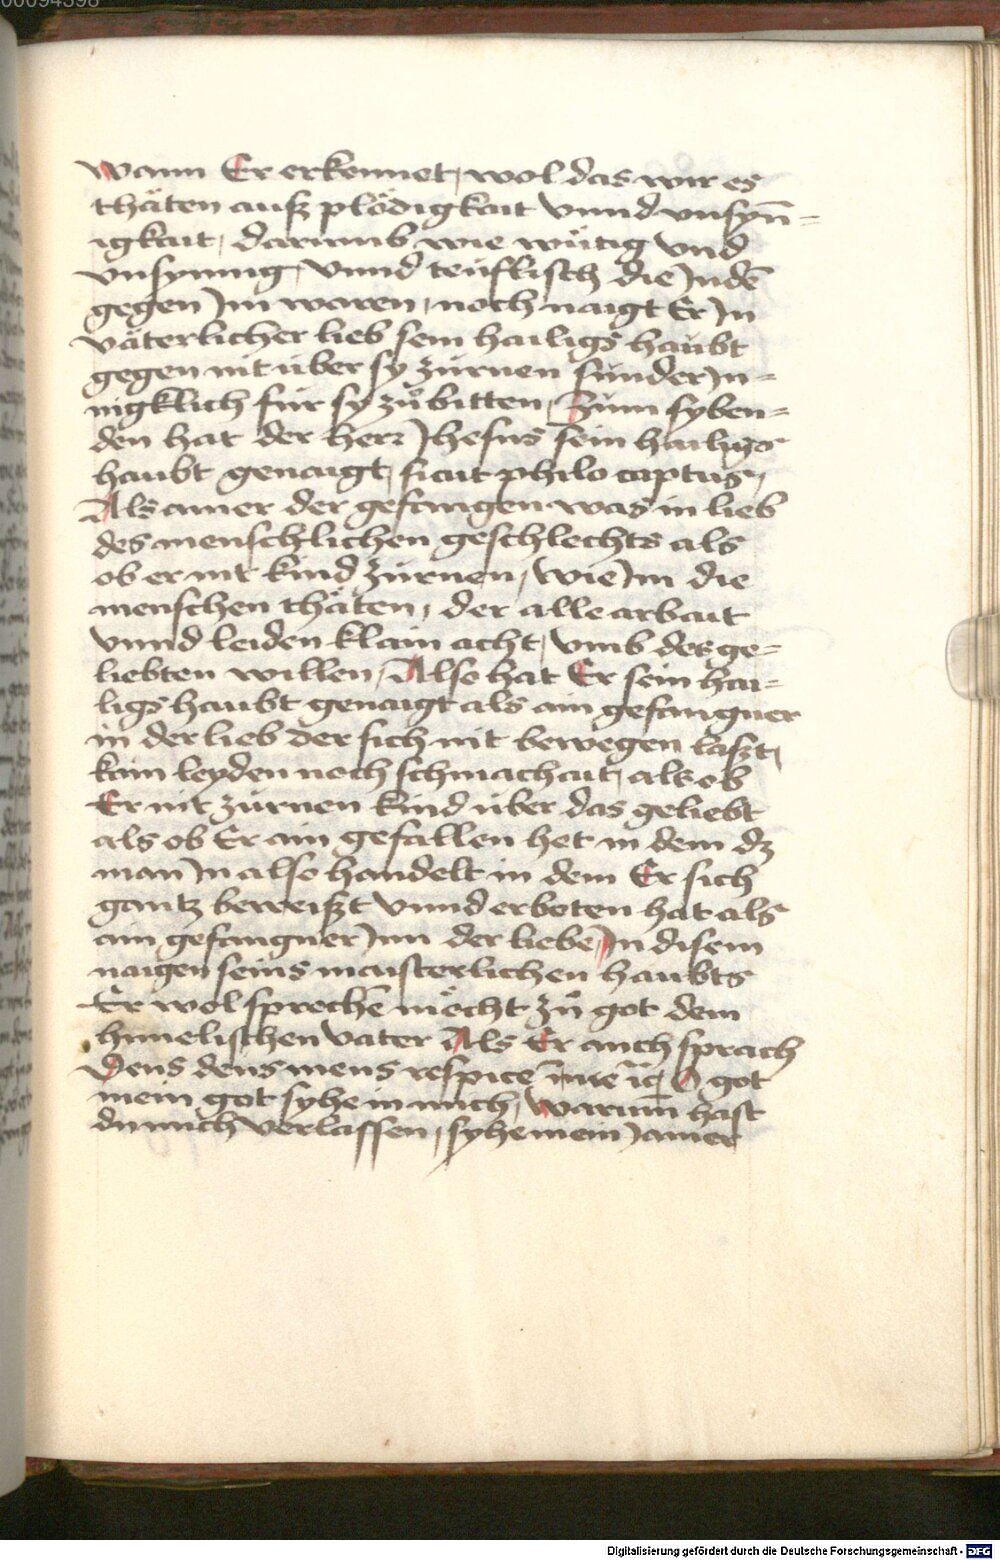 00094398
wann Er erkennet, wol das wir es
thäten auß plödigkait vnnd vnsyn̄=
igkait, darumb wie wütig vnd
vnsynnig, vnnd teüflisch die Judē
gegen Jm waren, noch naigt Er Jn
väterlicher lieb sein hailigs haubt
gegen nit über sy zürnen sunder Jn=
nigklich für sy zůbitten, Zum syben=
den hat der herr Jhesus sein hailigs
haubt genaigt, sicut philocaptus,
Als ainer der gefangen was in lieb
des menschlichen geschlechts als
ob er nit kind zürnen, wie Jm die
menschen thäten, der alle arbait
vnnd leiden klain acht, vmb des ge=
liebten willen, Also hat Er sein hai=
ligs haubt genaigt als ain gefangner
in der lieb der sich nit bewegen laßt,
kain leyden noch schmachait, als ob
Er nit zürnen kind über das geliebt
als ob Er ain gefallen het in dem dz
man Jn also handelt in dem Er sich
gantz beweißt vnnd erboten hat als
ain gefangner Jnn der liebe, Jn disem
naigen seins maisterlichen haubts
Er wol sprechē möcht zů got dem
himelischen vater Als Er auch sprach
Deus deus meus respice in me O got
mein got syhe in mich, warum̄ hast
du mich verlassen, syhe mein Jamer
Digitalisierung gefördert durch die Deutsche Forschungsgemeinschaft - DFG